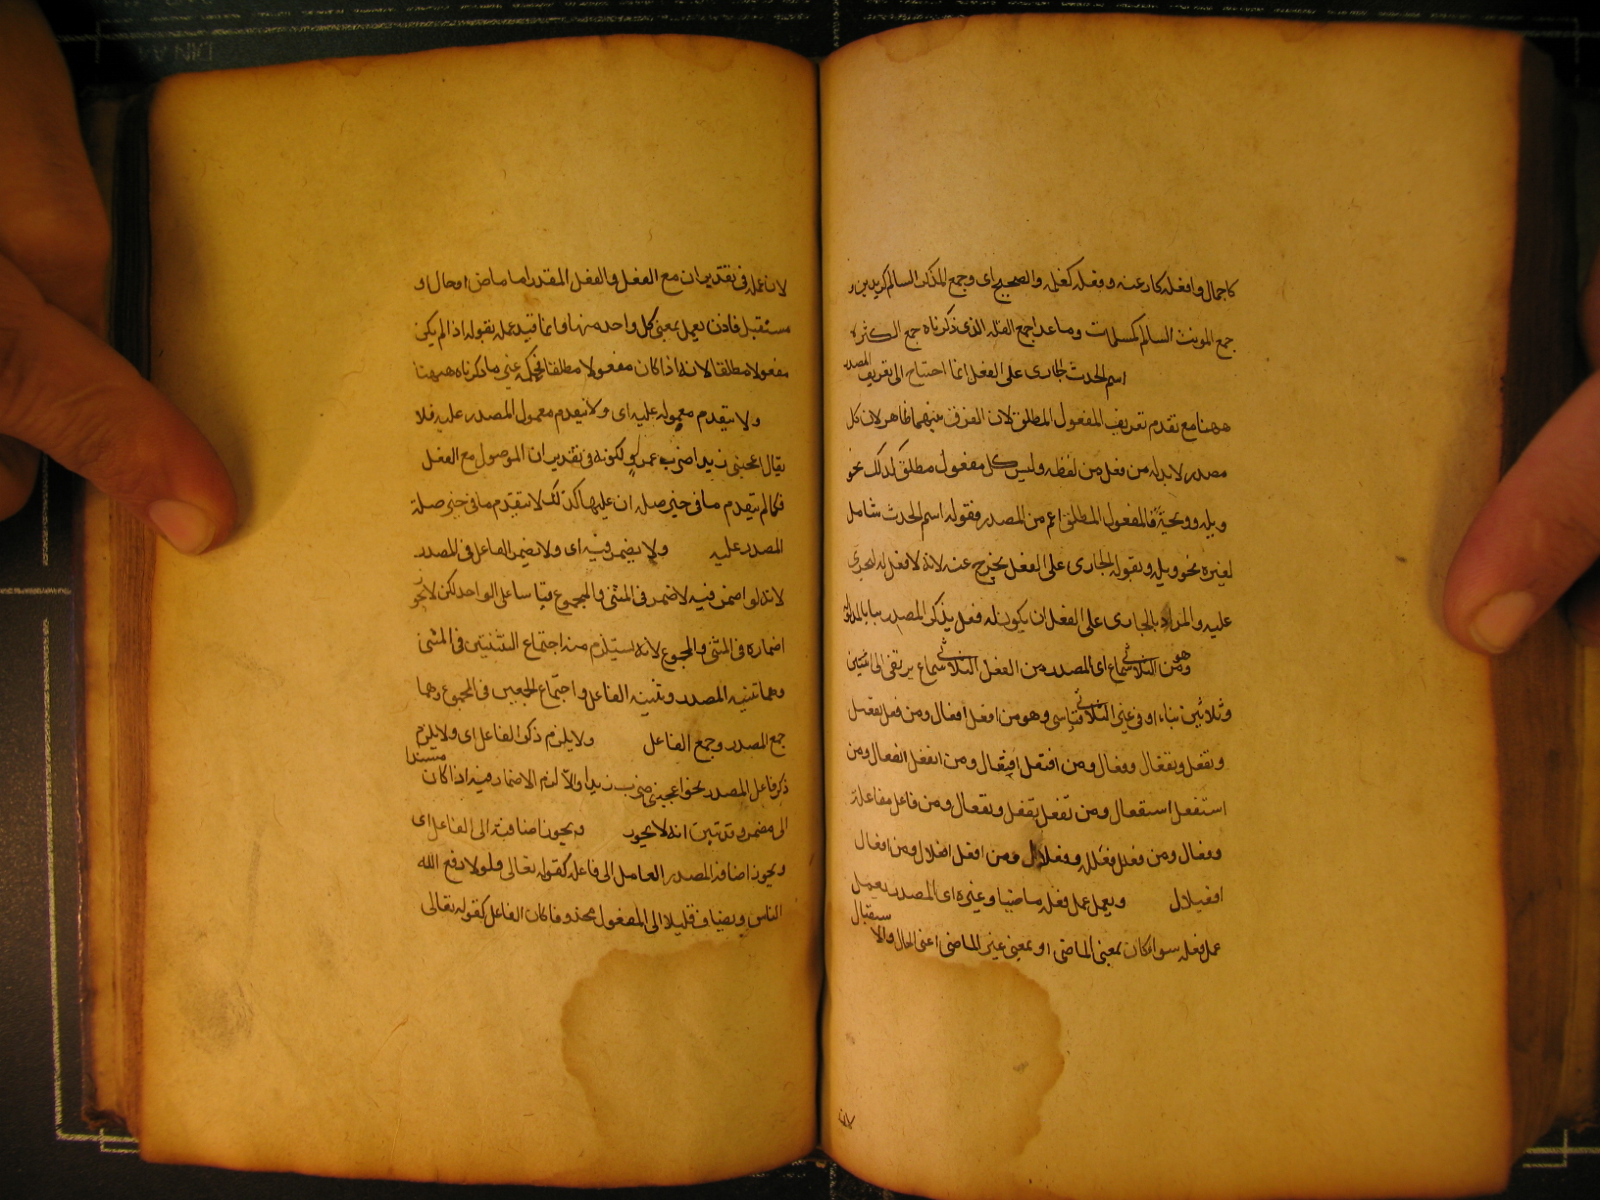 كاجمال وافعلة كارغفة وفعلة كغلمة والصحيح اى وجمع المذكر السالم كزيدين و
جمع المونث السالم كمسلمات وماعدا جمع القلة الذى ذكرناه جمع الكثرة
اسم الحدث الجارى على الفعل انما احتاج الى تعريف المصدر
ههنا مع تقدم تعريف المفعول المطلق لان الفرق بينهما ظاهر لان كل
مصدر لابد له من فعل من لفظه وليس كل مفعول مطلق كذلك نحو
ويله وويحه فالمفعول المطلق اعم من المصدر فقوله اسم الحدث شامل
لغيره نحو ويله وبقوله الجارى على الفعل يخرج عنه لانه لا فعل له ليجرى
عليه والمراد بالجارى على الفعل ان يكون له فعل يذكر المصدر بيانا لمدلوله
وهو من الثلاثى سماع اى المصدر من الفعل الثلاثى سماع يرتقى الى اثنين
وثلاثين بناء او فى غير الثلاثى قياسى وهو من افعل افعال ومن فعل تفعيل
وتفعلة وتفعال وفعال ومن افتعل افتعال ومن انفعل انفعال ومن
استفعل استفعال ومن تفعل تفعل وتفعال ومن فاعل مفاعلة
وفعال ومن فعلل فعللة وفعلال ومن افعل افعلال ومن افعال
افعيلال ويعمل عمل فعله ماضيا وغيره اى المصدر يعمل
عمل فعله سواء كان بمعنى الماضى او بمعنى غير الماضى اعنى الحال والاستقبال
لانه
لان عمله فى تقدير ان مع الفعل والفعل المقدر اما ماض او حال او
مستقبل فاذن يعمل بمعنى كل واحد منها وانما قيد عمله بقوله اذا لم يكن
مفعولا مطلقا لانه اذا كان مفعولا مطلقا فحكمه غير ما ذكرناه ههنا
ولا يتقدم معموله عليه اى ولا يتقدم معمول المصدر عليه فلا
يقال اعجبنى زيدا ضرب عمرو لكونه فى تقدير ان الموصول مع الفعل
فكما لم يتقدم ما فى حيز صلة ان عليها كذلك لا يتقدم ما فى حيز صلة
المصدر عليه ولا يضمر فيه اى ولا يضمر الفاعل فى المصدر
لانه لو اضمر فيه لاضمر فى المثنى والمجموع قياسا على الواحد لكن لا يجوز
اضماره فى المثنى والمجموع لانه يستلزم منه اجتماع التثنيتين فى المثنى
وهما تثنية المصدر وتثنية الفاعل واجتماع الجمعين فى المجموع وهما
جمع المصدر وجمع الفاعل ولا يلزم ذكر الفاعل اى ولا يلزم
ذكر فاعل المصدر نحو اعجبنى ضرب زيدا والا لزم الاضمار فيه اذا كان مسندا
الى مضمر وقد تبين انه لا يجوز ويجوز اضافته الى الفاعل اى
ويجوز اضافة المصدر العامل الى فاعله كقوله تعالى ولولا دفع الله
الناس ويضاف قليلا الى المفعول محذوفا كان الفاعل كقوله تعالى